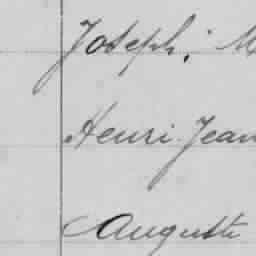 Joseph, M
Henri Jean
Auguste